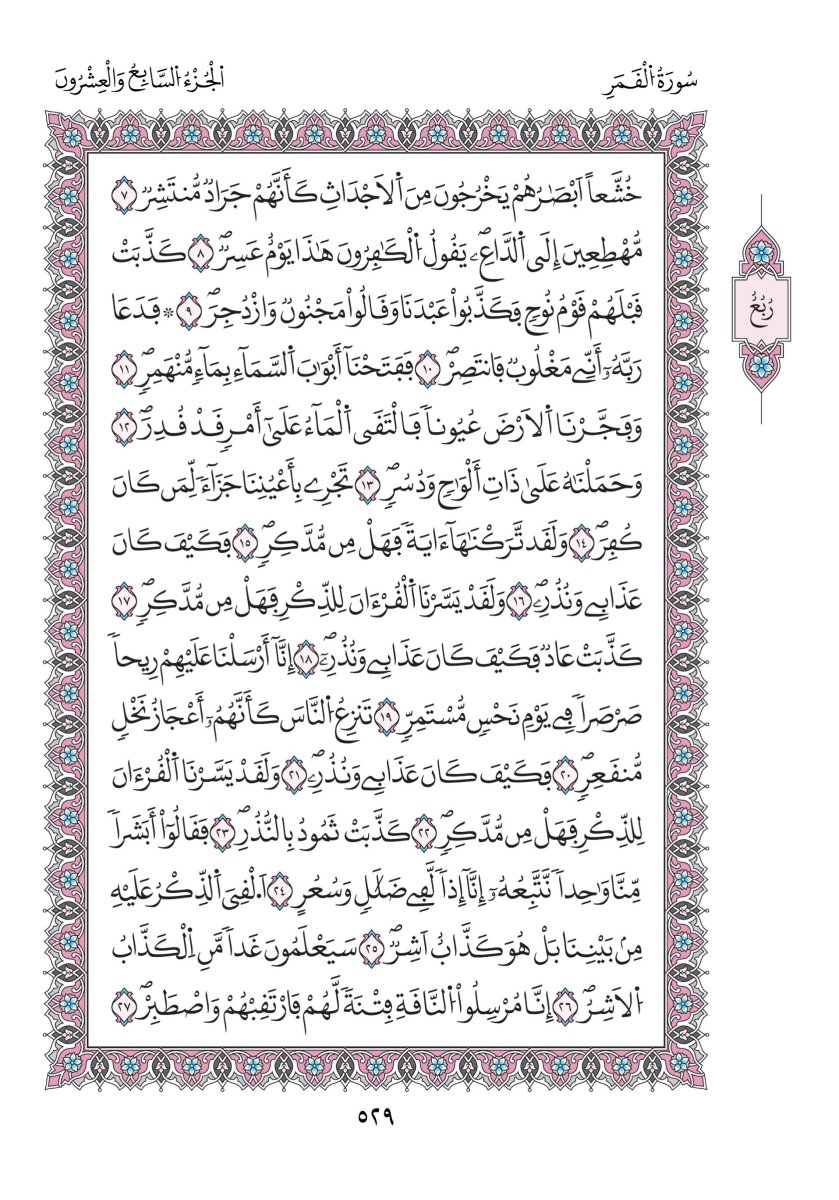 سُورَةُ اَ۬لْقَمَرِ
اَ۬لْجُزْءُ اَ۬لسَّابِعُ وَالْعِشْرُونَ
خُشَّعاً اَبْصَٰرُهُمْ يَخْرُجُونَ مِنَ اَ۬لَاجْدَاثِ كَأَنَّهُمْ جَرَادٞ مُّنتَشِرٞ ٧
مُّهْطِعِينَ إِلَي اَ۬لدَّاعِۦ يَقُولُ اُ۬لْكَٰفِرُونَ هَٰذَا يَوْمٌ عَسِرٞۖ ٨ كَذَّبَتْ
قَبْلَهُمْ قَوْمُ نُوحٖ فَكَذَّبُواْ عَبْدَنَا وَقَالُواْ مَجْنُونٞ وَازْدُجِرَۖ ٩ ۞ فَدَعَا
رَبَّهُۥٓ أَنِّے مَغْلُوبٞ فَانتَصِرْۖ ١٠ فَفَتَحْنَآ أَبْوَٰبَ اَ۬لسَّمَآءِ بِمَآءٖ مُّنْهَمِرٖۖ ١١
وَفَجَّرْنَا اَ۬لَارْضَ عُيُوناٗ فَالْتَقَي اَ۬لْمَآءُ عَلَيٰٓ أَمْرٖ قَدْ قُدِرَۖ ١٢
وَحَمَلْنَٰهُ عَلَيٰ ذَاتِ أَلْوَٰحٖ وَدُسُرٖۖ ١٣ تَجْرِے بِأَعْيُنِنَا جَزَآءٗ لِّمَن كَانَ
كُفِرَۖ ١٤ وَلَقَد تَّرَكْنَٰهَآ ءَايَةٗ فَهَلْ مِن مُّدَّكِرٖۖ ١٥ فَكَيْفَ كَانَ
عَذَابِے وَنُذُرِۦۖ ١٦ وَلَقَدْ يَسَّرْنَا اَ۬لْقُرْءَانَ لِلذِّكْرِ فَهَلْ مِن مُّدَّكِرٖۖ ١٧
كَذَّبَتْ عَادٞ فَكَيْفَ كَانَ عَذَابِے وَنُذُرِۦٓۖ ١٨ إِنَّآ أَرْسَلْنَا عَلَيْهِمْ رِيحاٗ
صَرْصَراٗ فِے يَوْمِ نَحْسٖ مُّسْتَمِرّٖ ١٩ تَنزِعُ اُ۬لنَّاسَ كَأَنَّهُمُۥٓ أَعْجَازُ نَخْلٖ
مُّنقَعِرٖۖ ٢٠ فَكَيْفَ كَانَ عَذَابِے وَنُذُرِۦۖ ٢١ وَلَقَدْ يَسَّرْنَا اَ۬لْقُرْءَانَ
لِلذِّكْرِ فَهَلْ مِن مُّدَّكِرٖۖ ٢٢ كَذَّبَتْ ثَمُودُ بِالنُّذُرِۖ ٢٣ فَقَالُوٓاْ أَبَشَراٗ
مِّنَّا وَٰحِداٗ نَّتَّبِعُهُۥٓ إِنَّآ إِذاٗ لَّفِے ضَلَٰلٖ وَسُعُرٍ ٢٤ اَ۟لْقِيَ اَ۬لذِّكْرُ عَلَيْهِ
مِنۢ بَيْنِنَا بَلْ هُوَ كَذَّابٌ اَشِرٞۖ ٢٥ سَيَعْلَمُونَ غَداٗ مَّنِ اِ۬لْكَذَّابُ
اُ۬لَاشِرُۖ ٢٦ إِنَّا مُرْسِلُواْ اُ۬لنَّاقَةِ فِتْنَةٗ لَّهُمْ فَارْتَقِبْهُمْ وَاصْطَبِرْۖ ٢٧
رُبُعُ
٥٢٩